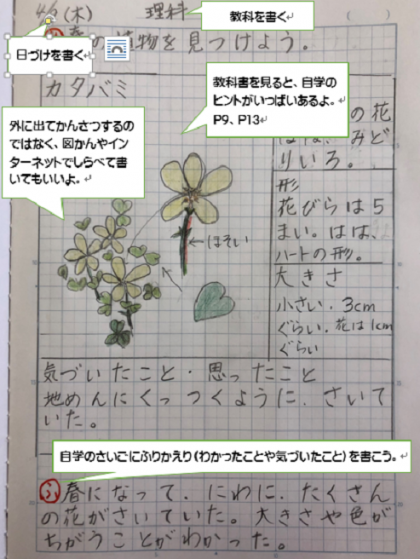 (木) 理科 ( )
教科を書く
日づけを書く
の植物を見つけよう。
カタバミ
教科書を見ると、自学の
ヒントがいっぱいあるよ。
P9、P13
外に出てかんさつするの
ではなく、図かんやイン
ターネットでしらべて書
いてもいいよ。
の花
みど
りいろ。
形
花びらは5
まい。はは、
ハートの形。
←ほそい
大きさ
小さい.3cm
ぐらい.花は1cm
ぐらい
気づいたこと・思ったこと
地めんにくっつくように、さいて
いた。
自学のさいごにふりかえり(わかったことや気づいたこと)を書こう。
ふ春になって、にわに、たくさん
の花がさいていた。大きさや色が
ちがうことがわかった。